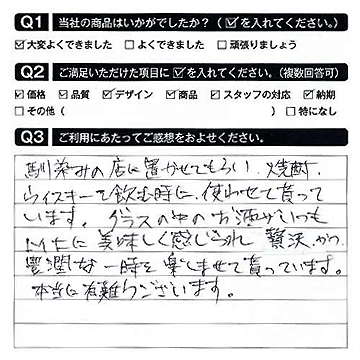 Q1 当社の商品はいかがでしたか？（☑を入れてください。）
☑大変よくできました □よくできました □頑張りましょう
Q2 ご満足いただけた項目に☑を入れてください。（複数回答可）
☑価格 ☑品質 ☑デザイン ☑商品 ☑スタッフの対応 ☑納期
□その他（ ）□特になし
Q3 ご利用にあたってご感想をおよせください。
馴染みの店に置かせてもらい、焼酎、
ウイスキーを飲む時に、使わせて貰って
います。グラスの中のお酒がいつも
以上に美味しく感じられ 贅沢、かつ
豊潤な一時を楽しませて貰っています。
本当に有難うございます。